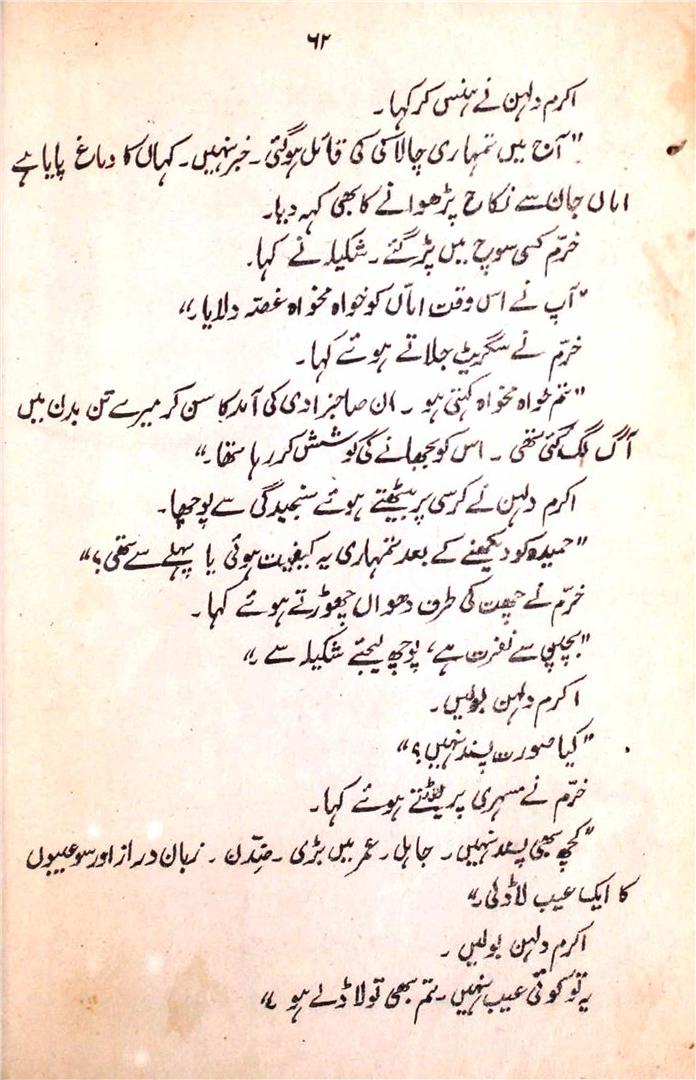 ۶۲
اکرم دلہن نے ہنس کر کہا۔
"آج میں تمہاری چالاکی کی قائل ہوگئی۔ خبر نہیں۔ کہاں کا دماغ پایا ہے
اماں جان سے نکاح پڑھوانے کا بھی کہہ دیا۔
خرّم کسی سوچ میں پڑ گئے۔ شکیلہ نے کہا۔
"آپ نے اس وقت امّاں کو خواہ مخواہ غصّہ دلایا۔"
خرّم نے سگریٹ جلاتے ہوئے کہا۔
"تم خواہ مخواہ کہتی ہو۔ ان صاحبزادی کی آمد کا سن کر میرے تن بدن میں
آگ لگ گئی تھی۔ اس کو بجھانے کی کوشش کر رہا تھا۔"
اکرم دلہن نے کرسی پر بیٹھتے ہوئے سنجیدگی سے پوچھا۔
"حمیدہ کو دیکھنے کے بعد تمہاری یہ کیفیت ہوئی یا پہلے سے تھی؟"
خرّم نے چھت کی طرف دھواں چھوڑتے ہوئے کہا۔
"بچپن سے نفرت ہے، پوچھ لیجئے شکیلہ سے۔"
اکرم دلہن بولیں۔
"کیا صورت پسند نہیں؟"
خرّم نے مسہری پر لیٹتے ہوئے کہا۔
"کچھ بھی پسند نہیں۔ جاہل۔ عمر میں بڑی۔ ضدّن۔ زبان دراز اور سو عیبوں
کا ایک عیب لاڈلی۔"
اکرم دلہن بولیں۔
یہ تو کوئی عیب نہیں۔ تم بھی تو لاڈلے ہو۔"